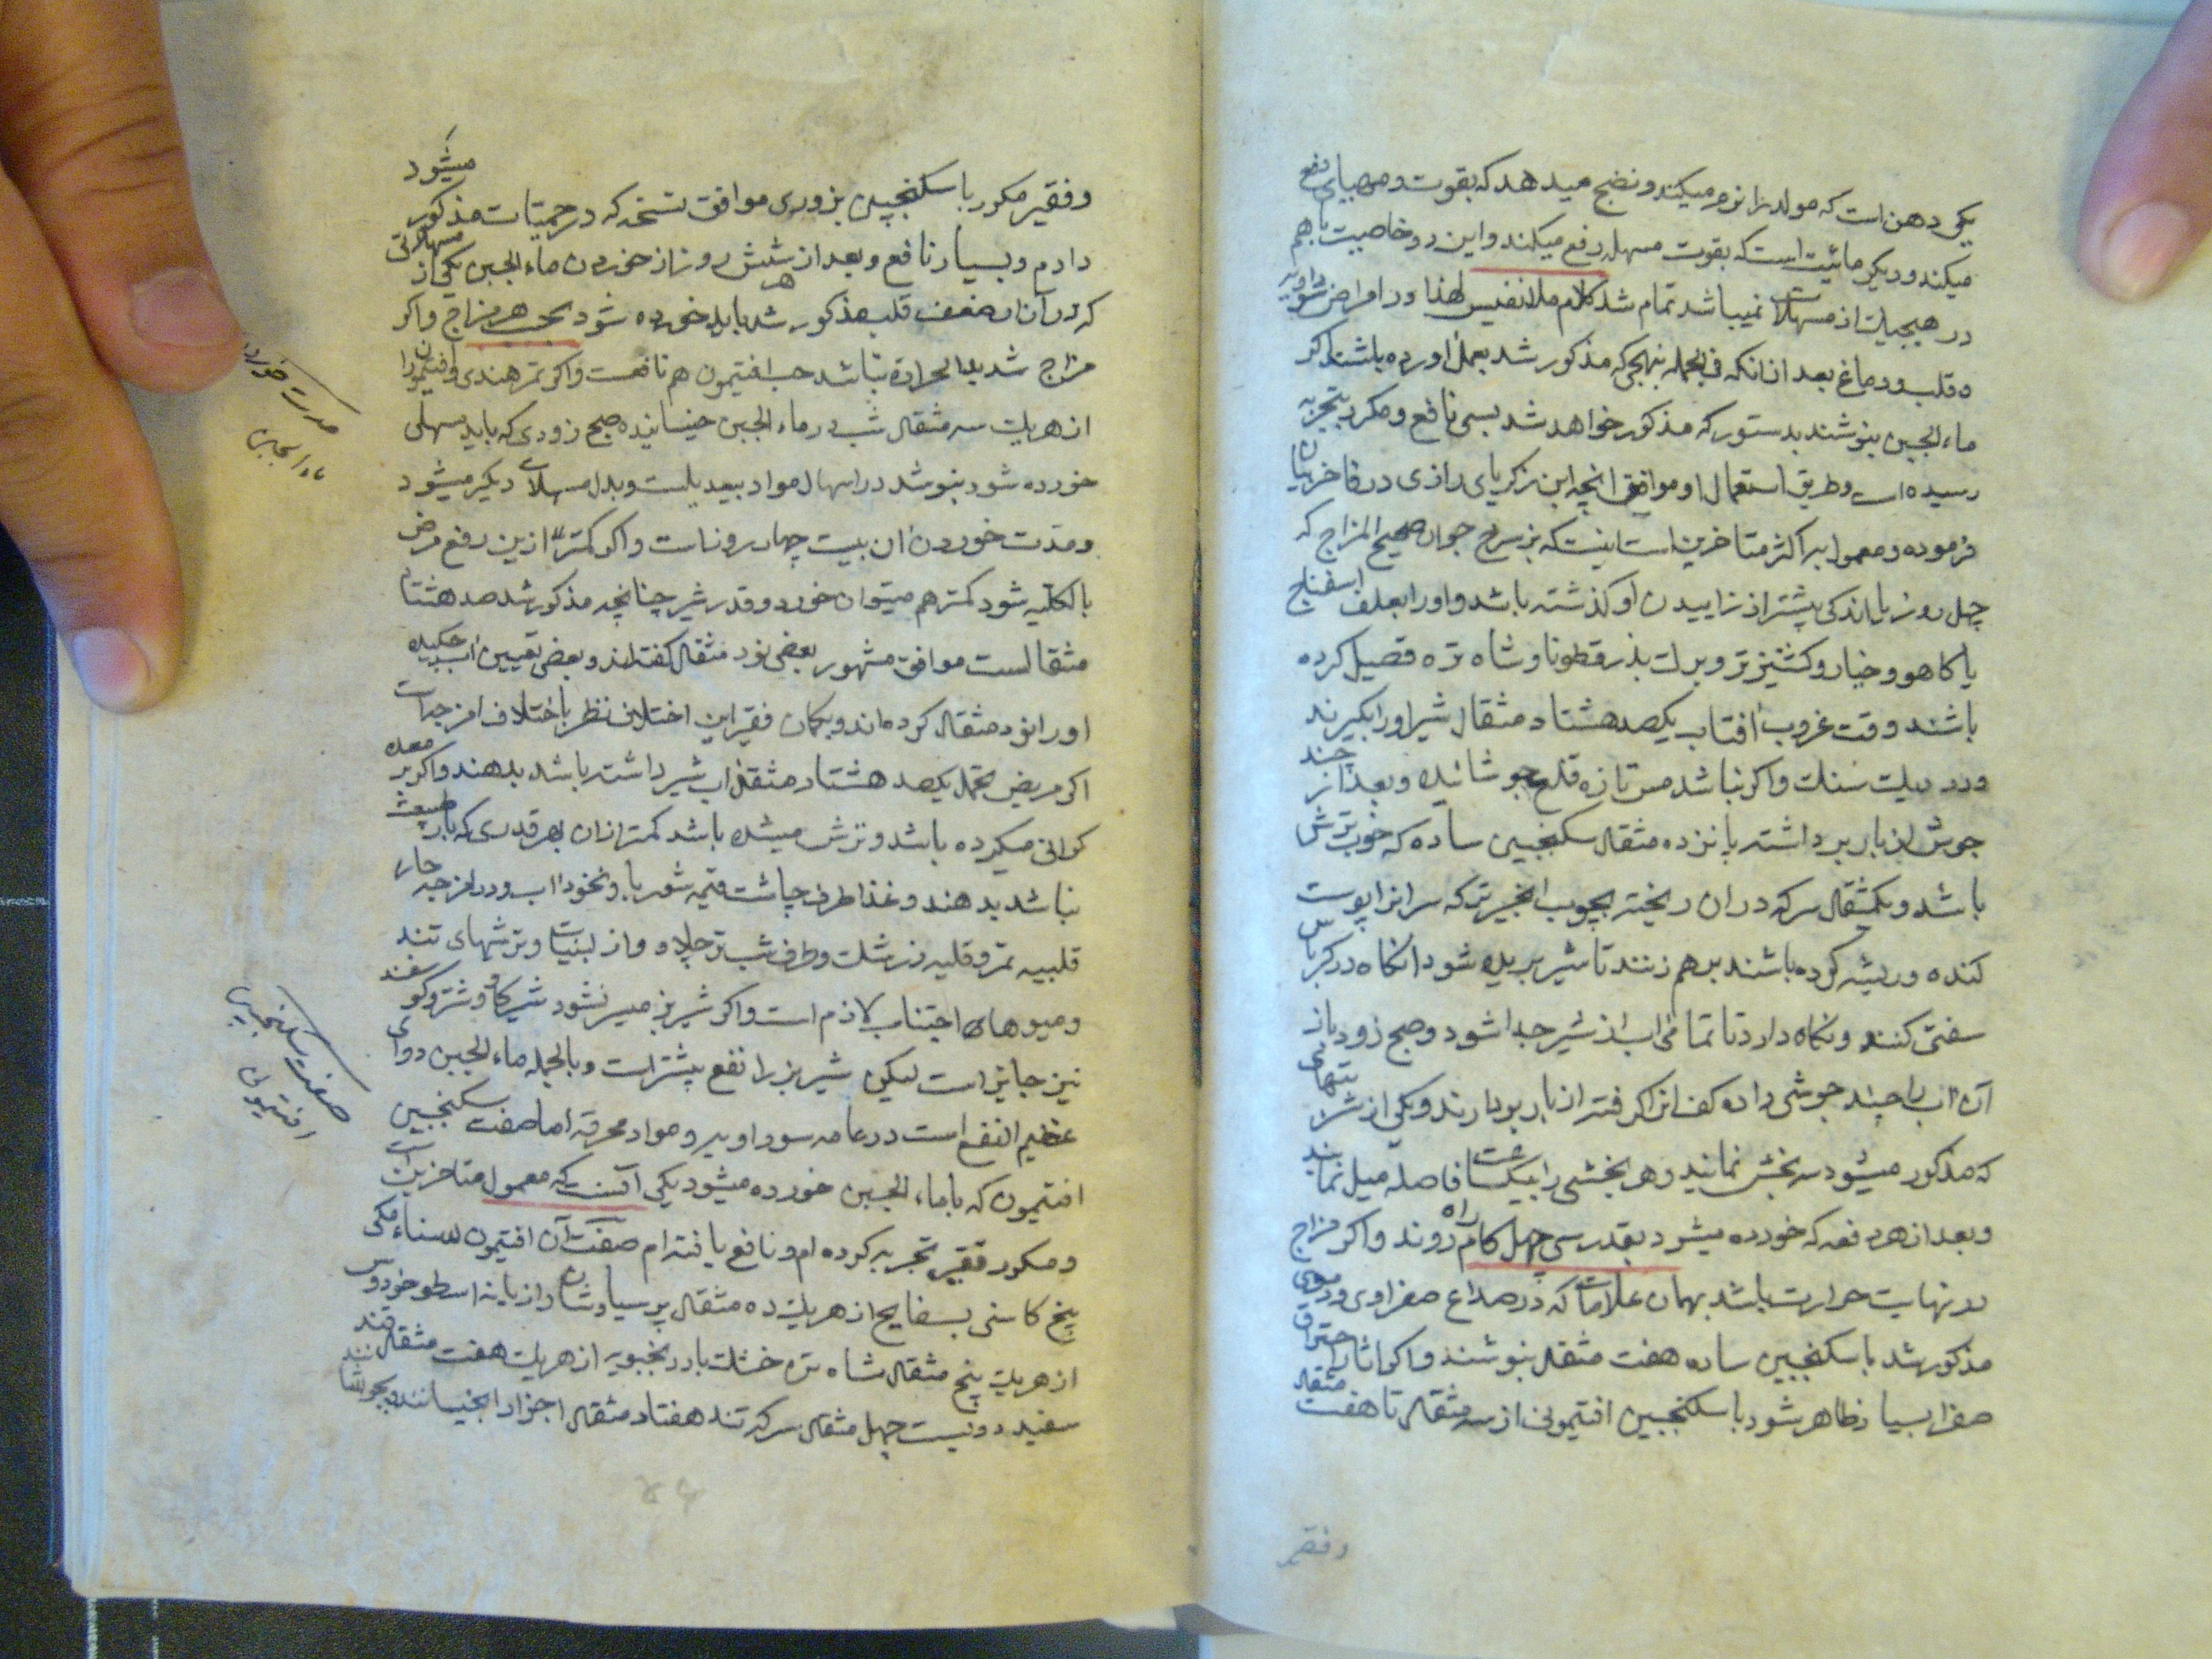 یکی دهن است که مواد را نرم میکند و نضج میدهد که بقوت و مهیای دفع
میکند و دیگر مائیت است که بقوت مسهله رفع میکند و این دو خاصیت باهم
در هیچیک از مسهلات نمیباشد تمام شد کلام ملا نفیس لهذا در امراض سوداویه
قلب و دماغ بعد از انکه فی الجمله بنهجی که مذکور شد بعمل اورده باشند اکر
ماء الجبن بنوشند بدستور که مذکور خواهد شد بسی نافع و مکرر بتجربه
رسیده است و طریق استعمال او موافق انچه ابن زکریای رازی در فاخر بیان
فرموده و معمول به اکثر متاخرین است اینست که بز سرخ جوان صحیح المزاج که
چهل روز یا اندکی پیشتر از زاییدن او کذشته باشد و او را بعلف اسفناج
یا کاهو و خیار و کشنیز تر و برک بذر قطونا و شاه تره قصیل کرده
باشند وقت غروب افتاب یکصد هشتاد مثقال شیر او را بگیرند
و در دیک سنک و اکر نباشد مس تازه قلع جوشانیده و بعد از چند
جوش از بار برداشته پانزده مثقال سکنجبین ساده که خوب ترش
باشد و یکمثقال سرکه در ان ریخته بچوب انجیر تر که سر انرا پوست
کنده و ریشه کرده باشند برهم زنند تا شیر بریده شود انکاه در کرباس
سفتی کنند و نکاه دارند تا تمامی اب از شیر جدا شود و صبح زود باز
آن اب را چند جوشی داده کف انرا کرفته از بار بردارند و یکی از شربتهای
که مذکور میشود سه بخش نمایند و هر بخشی را بیکساعت فاصله میل نمایند
و بعد از هر دفعه که خورده میشود بقدر سی چهل کام راه روند و اکر مزاج
در نهایت حرارت باشد بهمان علامات که در صداع صفراوی و دموی
مذکور شد با سکنجبین ساده هفت مثقال بنوشند و اکر اثار احتراق
صفرا بسیار ظاهر شود با سکنجبین افتیمونی از سه مثقال تا هفت مثقال
وفقیر
وفقیر مکرر با سکنجبین بزوری موافق نسخه که در حمیات مذکور میشود
دادم و بسیار نافع و بعد از شش روز از خوردن ماء الجبن یکی از مسهلاتی
که در آن ضعف قلب مذکور شد باید خورده شود بحسب هر مزاج و اکر
مزاج شدید الحرارة نباشد حب افتیمون هم نافعست و اکر تمر هندی و افتیمون را
از هریک سه مثقال شب در ماء الجبن خیسانیده صبح زودی که باید مسهلی
خورده شود بنوشد در اسهال مواد بیعدیلست و بدل مسهلات دیکر میشود
و مدت خوردن ان بیست چهار روز است و اکر کمتر از این رفع مرض
بالکلیه شود کمتر هم میتوان خورد و قدر شیر چنانچه مذکور شد صد هشتاد
مثقالست موافق مشهور بعضی نود مثقال کفته‌اند و بعضی تعیین اب چکیده
او را نود مثقال کرده‌اند و بکمان فقیر این اختلاف نظر باختلاف امزجه است
اکر مریض تحمل یکصد هشتاد مثقال اب شیر داشته باشد بدهند و اکر بر معده
کرانی میکرده باشد و ترش میشده باشد کمتر از ان بهر قدری که بار طبیعت
نباشد بدهند و غذا طرف چاشت قیمه شوربا و نخوداب و در امزجه حار
قلیه تمر و قلیه زرشک و طرف شب تر چلاو و از لبنیات و ترشهای تند
و میوهای اجتناب لازم است و اکر شیر بز میسر نشود شیر کاو و شتر و کوسفند
نیز جایز است لیکن شیر بز را نفع بیشتر است و بالجمله ماء الجبن دوای
عظیم النفع است در عامه سوداویه و مواد محرقه اما صفت سکنجبین
افتیمون که با ماء الجبن خورده میشود یکی آنست که معمول متاخرین است
و مکرر فقیر تجربه کرده‌ام و نافع یافته‌ام صفت آن افتیمون سناء مکی
بیخ کاسنی بسفایج از هریک ده مثقال پرسیاوشان رازیانه اسطوخودوس
از هریک پنج مثقال شاه تره خشک بادرنجبویه از هریک هفت مثقال قند
سفید دویست چهل مثقال سرکه تند هفتاد مثقال اجزا را بخیسانند و بجوشانند
مدت خوردن
ماء الجبن
صفت سکنجبین
افتیمونی